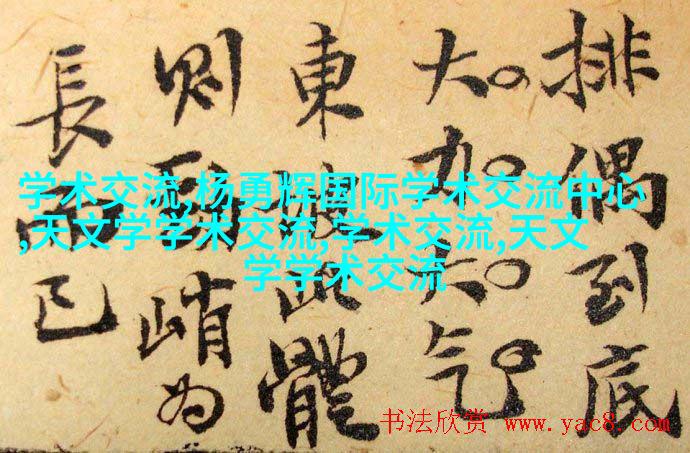 排偶到底
大力大气
東坡此體
則峭為
長而已
学术交流,杨勇辉国际学术交流中心
,天文学学术交流,学术交流,天文
学学术交流
书法欣赏 www.yac8.com